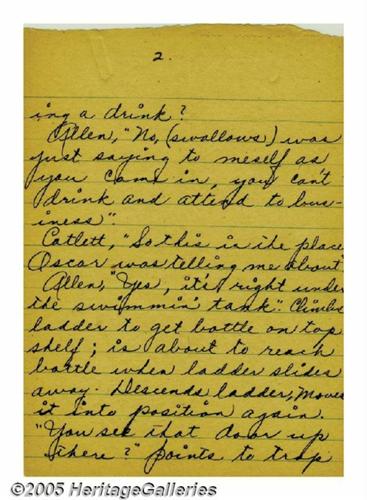 2.
ing a drink?
Allen, "No, (swallows) was
just saying to meself as
you came in, you can't
drink and attend to bus-
iness".
Catlett, "So this is the place
Oscar was telling me about
Allen, "Yes, it's right under
the swimmin' tank". Climbs
ladder to get bottle on top
shelf; is about to reach
bottle when ladder slides
away. Descends ladder, moves
it into position again.
"You see that door up
there?" points to trap
©2005 HeritageGalleries